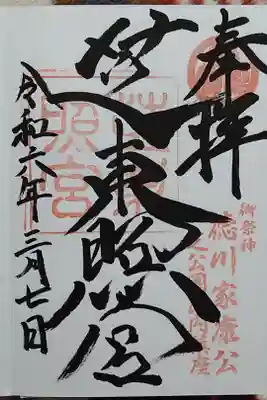 奉拝
御祭神
徳川家康公
芝東照宮
照宮
令和六年三月七日